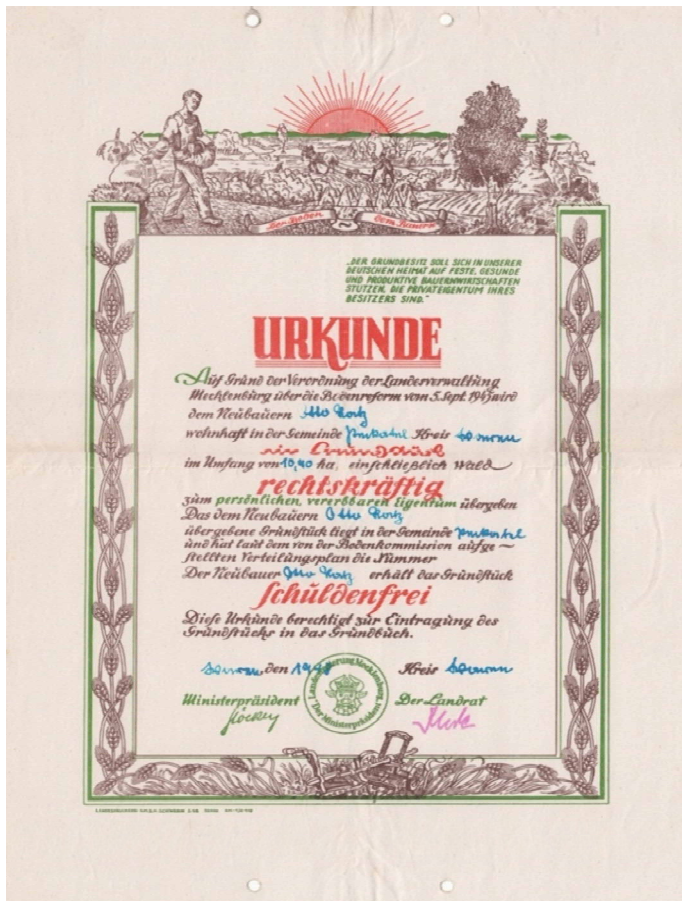 Der Boden dem Bauern
„DER GRUNDBESITZ SOLL SICH IN UNSERER
DEUTSCHEN HEIMAT AUF FESTE, GESUNDE
UND PRODUKTIVE BAUERNWIRTSCHAFTEN
STÜTZEN, DIE PRIVATEIGENTUM IHRES
BESITZERS SIND.“
URKUNDE
Auf Grund der Verordnung der Landesverwaltung
Mecklenburg über die Bodenreform vom 5. Sept. 1945 wird
dem Neubauern Otto
wohnhaft in der Gemeinde Kreis Waren
ein Grundstück
im Umfang von 10,40 ha, einschließlich Wald
rechtskräftig
zum persönlichen, vererbbaren Eigentum übergeben
Das dem Neubauern Otto
übergebene Grundstück liegt in der Gemeinde
und hat laut dem von der Bodenkommission aufge~
stellten Verteilungsplan die Nummer
Der Neubauer Otto erhält das Grundstück
schuldenfrei
Diese Urkunde berechtigt zur Eintragung des
Grundstücks in das Grundbuch.
Waren, den 1948 Kreis Waren
Ministerpräsident Der Landrat
Landesregierung Mecklenburg
Der Ministerpräsident